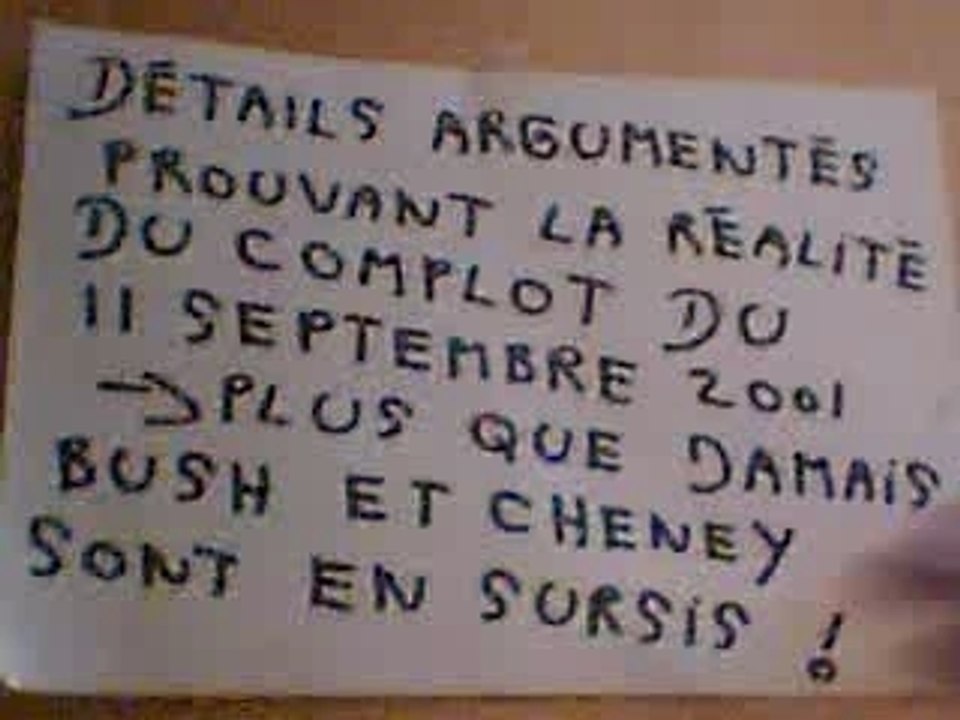 DÉTAILS ARGUMENTÉS
PROUVANT LA RÉALITÉ
DU COMPLOT DU
11 SEPTEMBRE 2001
→ PLUS QUE JAMAIS
BUSH ET CHENEY
SONT EN SURSIS !